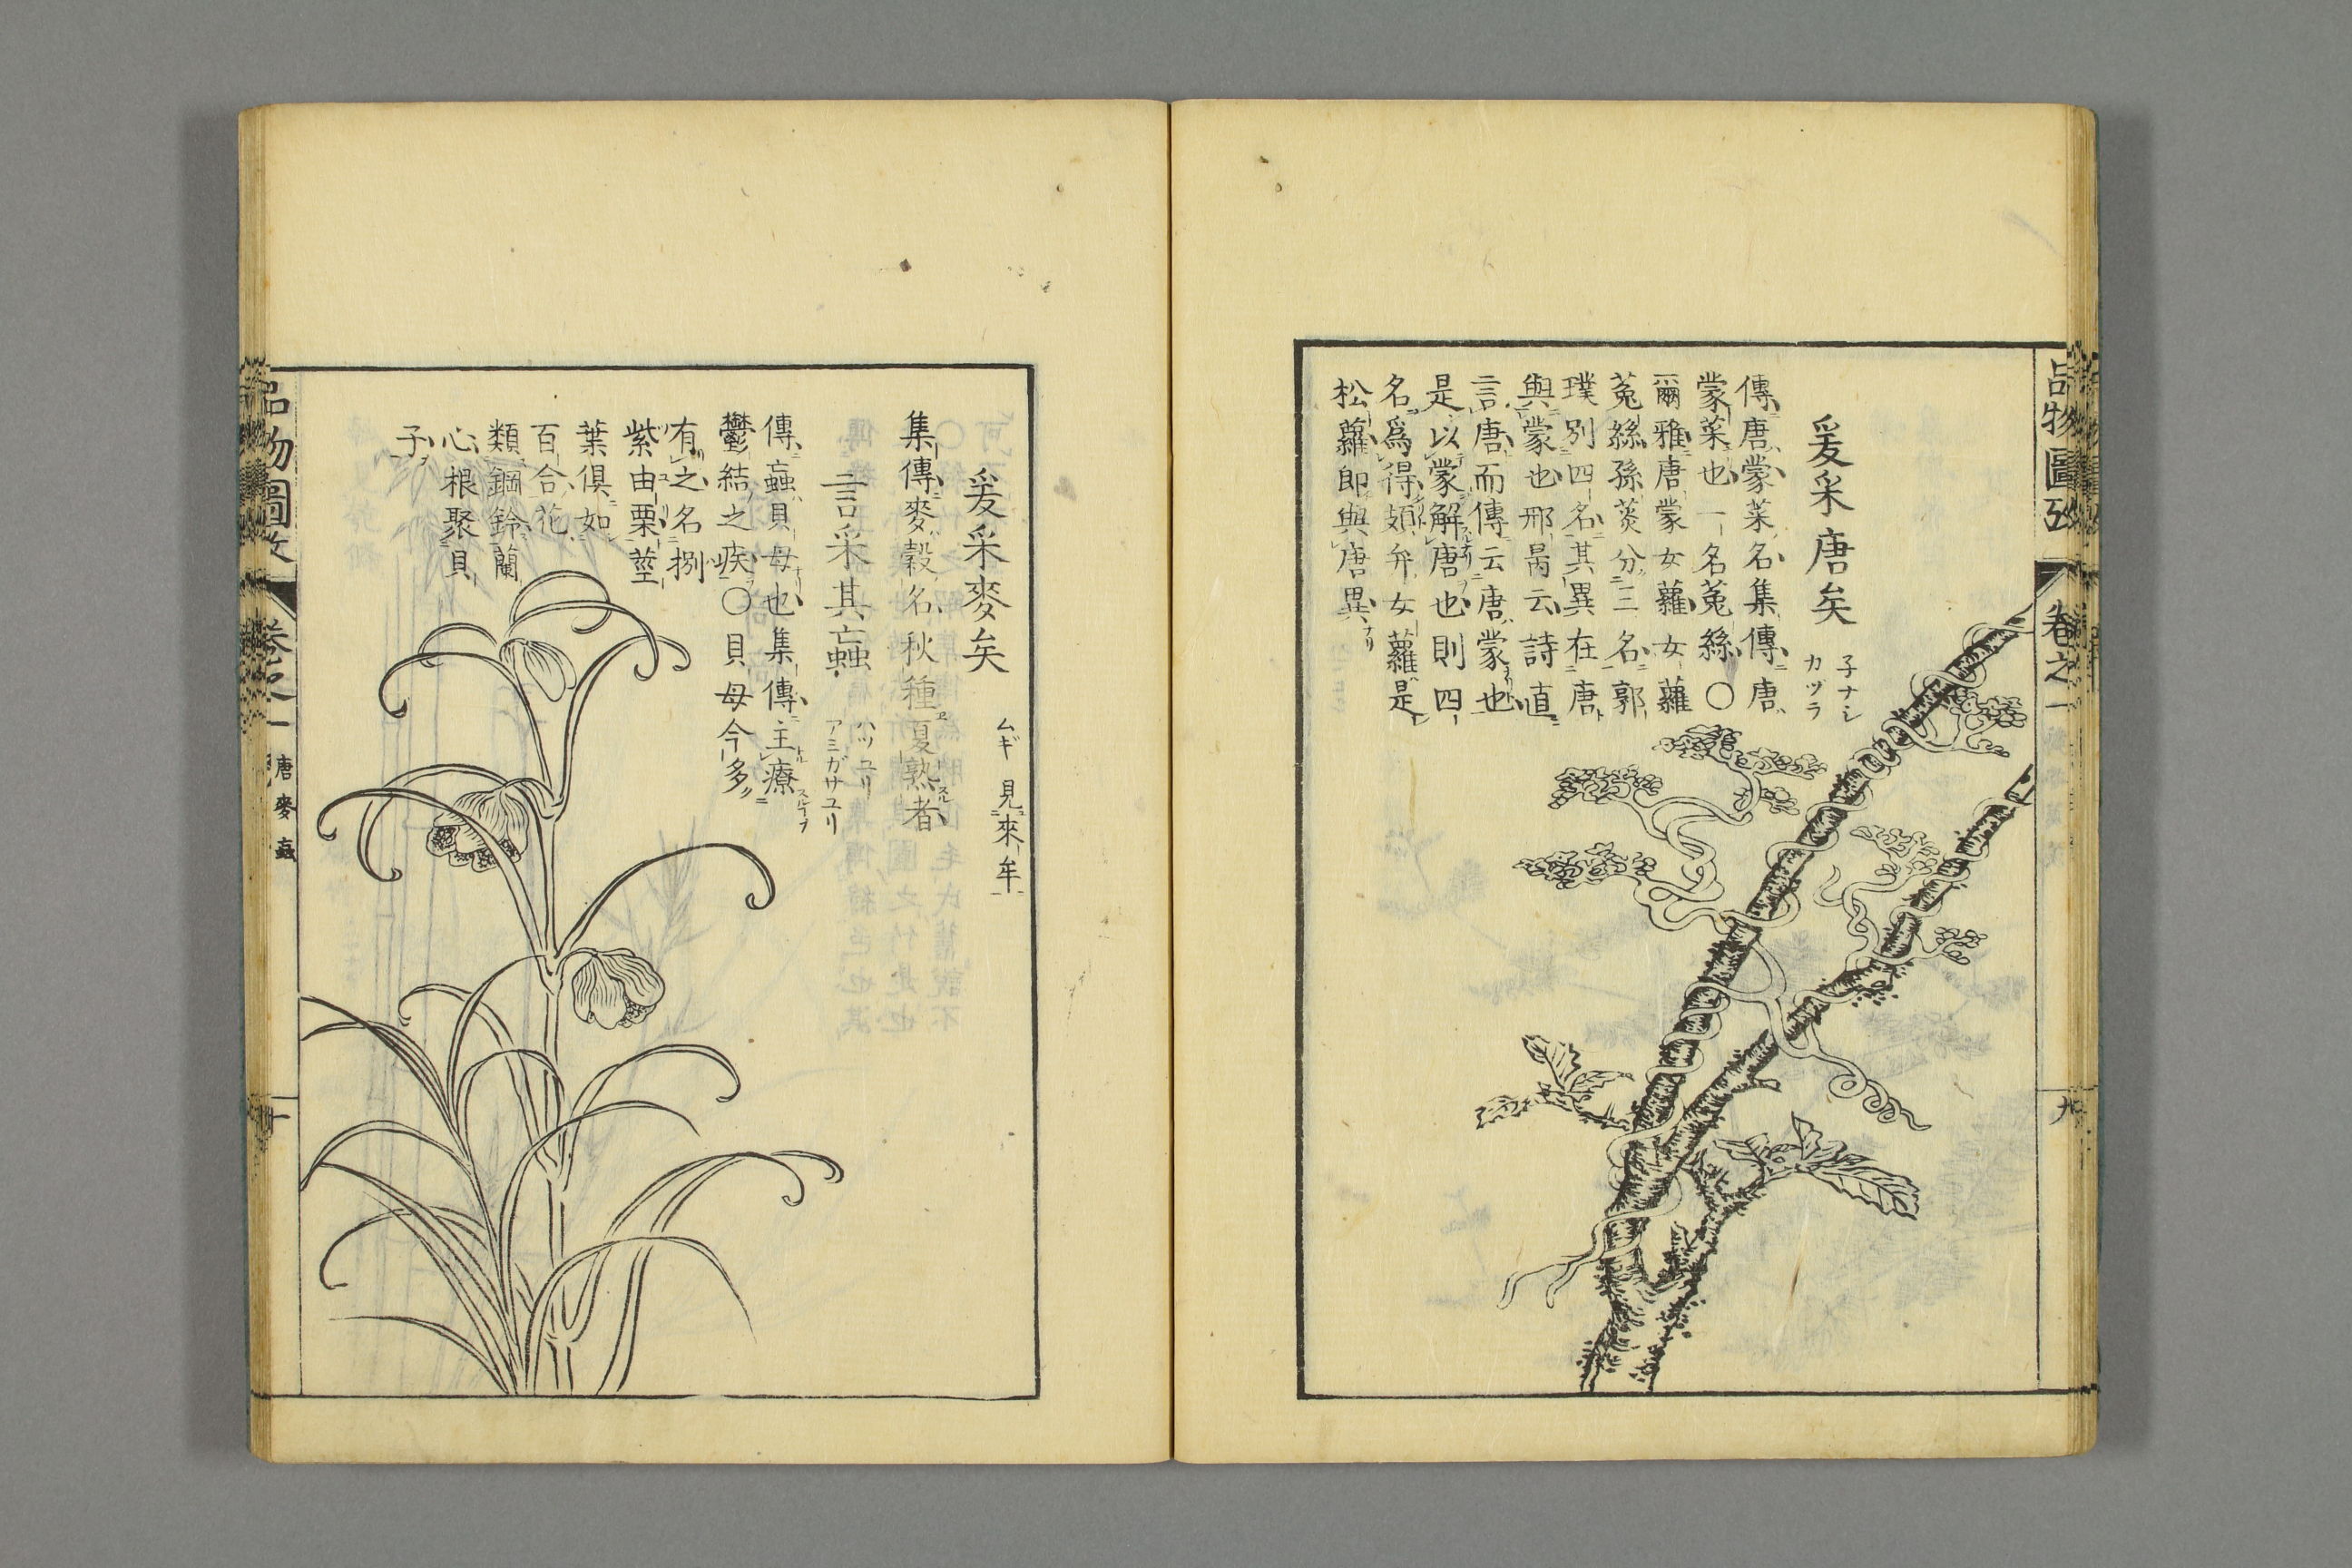 品物圖攷 卷之一 九
爰采唐矣
子ナシ
カヅラ
傳唐蒙菜名集傳唐
蒙菜也一名菟絲〇
爾雅唐蒙女蘿女蘿
菟絲孫炎分三名郭
璞別四名其異在唐
與蒙也邢昺云詩直
言唐而傳云唐蒙也
是以蒙解唐也則四
名爲得頍弁女蘿是
松蘿即與唐異ナリ
爰采麥矣
ムギ 見來牟
集傳麥穀名秋種夏熟者
言采其蝱
ハツユリ
アミガサユリ
傳蝱貝母也集傳主療
鬱結之疾〇貝母今多
有之名捌
紫由栗莖
葉俱如
百合花
類鋼鈴蘭
心根聚貝
子
品物圖攷 卷之一 唐 麥 蝱 十